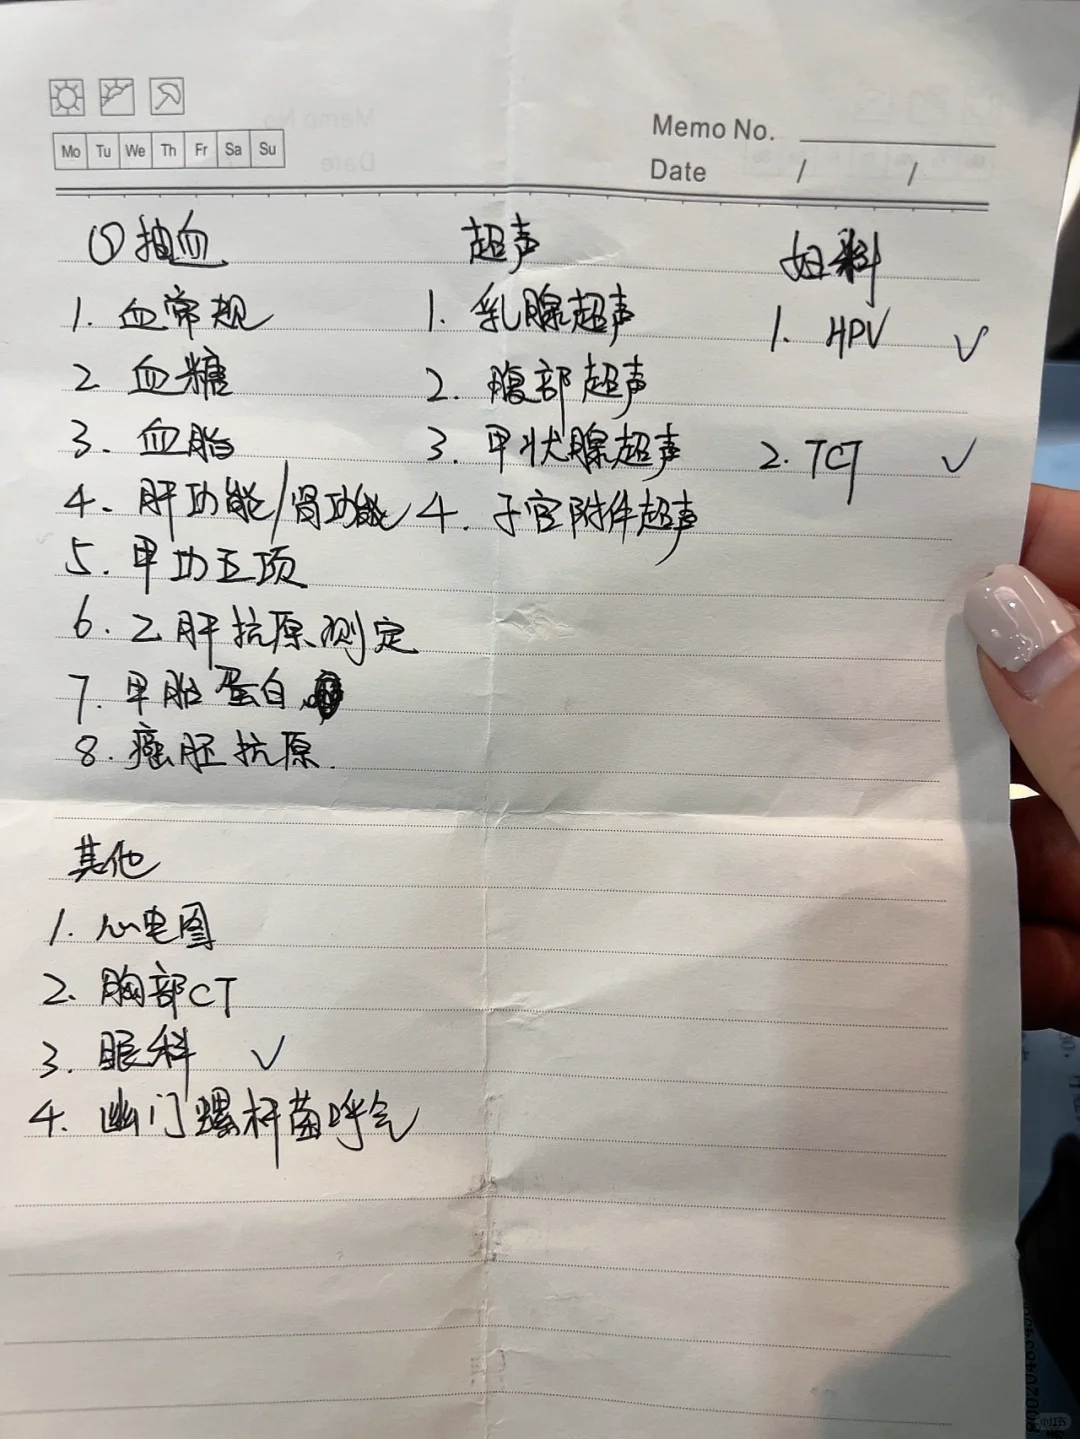 Mo Tu We Th Fr Sa Su
Memo No.
Date / /
①抽血
1. 血常规
2 血糖
3. 血脂
4、肝功能/肾功能
5. 甲功五项
6. 乙肝抗原测定
7. 甲胎蛋白
8. 癌胚抗原.
超声
1. 乳腺超声
2. 腹部超声
3. 甲状腺超声
4. 子宫附件超声
妇科
1. HPV ✓
2. TCT ✓
其他
1. 心电图
2. 胸部CT
3. 眼科 ✓
4. 幽门螺杆菌呼气
小红书